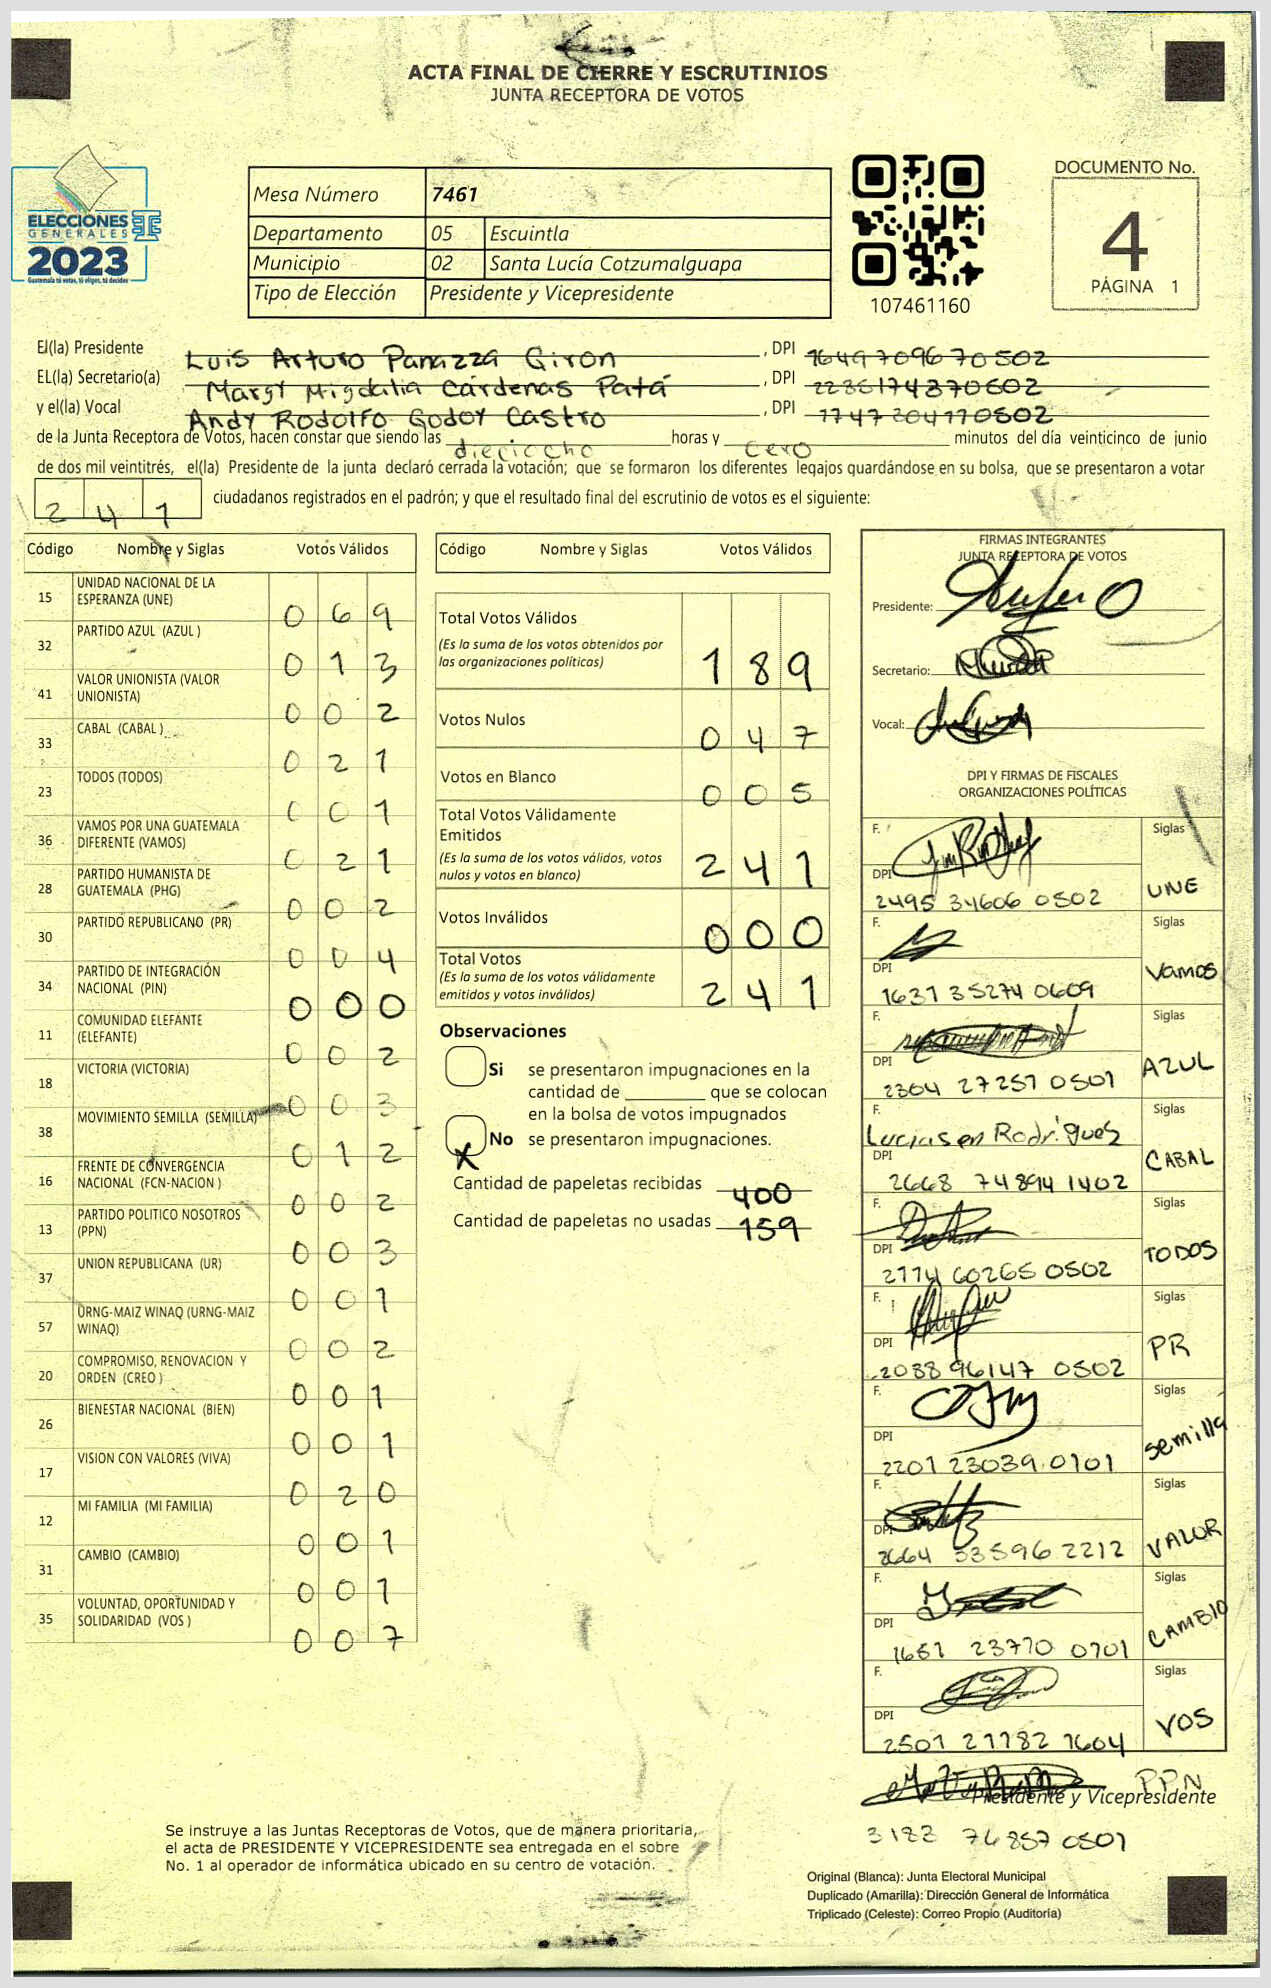 ACTA FINAL DE CIERRE Y ESCRUTINIOS
JUNTA RECEPTORA DE VOTOS
ELECCIONES
GENERALES
2023
Guatemala tú votas, tú eliges, tú decides
Mesa Número 7461
Departamento 05 Escuintla
Municipio 02 Santa Lucía Cotzumalguapa
Tipo de Elección Presidente y Vicepresidente
107461160
DOCUMENTO No.
4
PÁGINA 1
El(la) Presidente Luis Arturo Panazza Giron , DPI 1649709670502
EL(la) Secretario(a) Margy Migdalia Cárdenas Patá , DPI
y el(la) Vocal Andy Rodolfo Godoy Castro , DPI
de la Junta Receptora de Votos, hacen constar que siendo las dieciocho horas y cero minutos del día veinticinco de junio
de dos mil veintitrés, el(la) Presidente de la junta declaró cerrada la votación; que se formaron los diferentes legajos guardándose en su bolsa, que se presentaron a votar
241 ciudadanos registrados en el padrón; y que el resultado final del escrutinio de votos es el siguiente:
Código Nombre y Siglas Votos Válidos
15 UNIDAD NACIONAL DE LA
ESPERANZA (UNE) 069
32 PARTIDO AZUL (AZUL ) 013
41 VALOR UNIONISTA (VALOR
UNIONISTA) 002
33 CABAL (CABAL ) 021
23 TODOS (TODOS) 001
36 VAMOS POR UNA GUATEMALA
DIFERENTE (VAMOS) 021
28 PARTIDO HUMANISTA DE
GUATEMALA (PHG) 002
30 PARTIDO REPUBLICANO (PR) 004
34 PARTIDO DE INTEGRACIÓN
NACIONAL (PIN) 000
11 COMUNIDAD ELEFANTE
(ELEFANTE) 002
18 VICTORIA (VICTORIA) 003
38 MOVIMIENTO SEMILLA (SEMILLA) 012
16 FRENTE DE CONVERGENCIA
NACIONAL (FCN-NACION ) 002
13 PARTIDO POLITICO NOSOTROS
(PPN) 003
37 UNION REPUBLICANA (UR) 001
57 URNG-MAIZ WINAQ (URNG-MAIZ
WINAQ) 002
20 COMPROMISO, RENOVACION Y
ORDEN (CREO ) 001
26 BIENESTAR NACIONAL (BIEN) 001
17 VISION CON VALORES (VIVA) 020
12 MI FAMILIA (MI FAMILIA) 001
31 CAMBIO (CAMBIO) 001
35 VOLUNTAD, OPORTUNIDAD Y
SOLIDARIDAD (VOS ) 007
Código Nombre y Siglas Votos Válidos
Total Votos Válidos
(Es la suma de los votos obtenidos por
las organizaciones políticas) 189
Votos Nulos 047
Votos en Blanco 005
Total Votos Válidamente
Emitidos
(Es la suma de los votos válidos, votos
nulos y votos en blanco) 241
Votos Inválidos 000
Total Votos
(Es la suma de los votos válidamente
emitidos y votos inválidos) 241
Observaciones
Si se presentaron impugnaciones en la
cantidad de ________ que se colocan
en la bolsa de votos impugnados
X No se presentaron impugnaciones.
Cantidad de papeletas recibidas 400
Cantidad de papeletas no usadas 159
FIRMAS INTEGRANTES
JUNTA RECEPTORA DE VOTOS
Presidente:
Secretario:
Vocal:
DPI Y FIRMAS DE FISCALES
ORGANIZACIONES POLÍTICAS
F. Siglas
DPI 2495 34606 0502 UNE
F. Siglas
DPI 1631 35274 0609 Vamos
F. Siglas
DPI 2304 27257 0501 AZUL
F. Siglas
DPI 2668 74894 1402 CABAL
F. Siglas
DPI 2774 60265 0502 TODOS
F. Siglas
DPI 2038 96147 0502 PR
F. Siglas
DPI 2201 23039 0101 semilla
F. Siglas
DPI 2664 33596 2212 VALOR
F. Siglas
DPI 1651 23770 0701 CAMBIO
F. Siglas
DPI 2507 21782 1604 VOS
PPN
Presidente y Vicepresidente
3182 76857 0501
Se instruye a las Juntas Receptoras de Votos, que de manera prioritaria,
el acta de PRESIDENTE Y VICEPRESIDENTE sea entregada en el sobre
No. 1 al operador de informática ubicado en su centro de votación.
Original (Blanca): Junta Electoral Municipal
Duplicado (Amarilla): Dirección General de Informática
Triplicado (Celeste): Correo Propio (Auditoría)